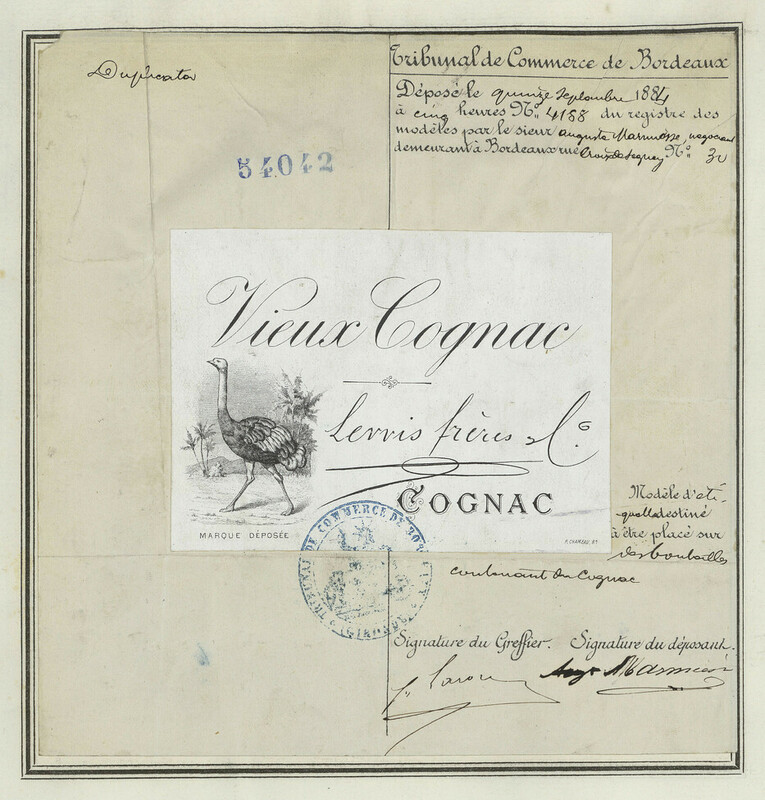 Duplicata
Tribunal de Commerce de Bordeaux
Déposé le quinze Septembre 1884
à cinq heures N° 4158 du registre des
modèles par le sieur Auguste négociant
demeurant à Bordeaux rue Croix de Seguey N° 30
54042
Vieux Cognac
frères & Co.
COGNAC
MARQUE DÉPOSÉE
TRIBUNAL DE COMMERCE DE BORDEAUX
(GIRONDE)
Modèle d'éti-
quette destiné
à être placé sur
des bouteilles
contenant du Cognac
Signature du Greffier. Signature du déposant.